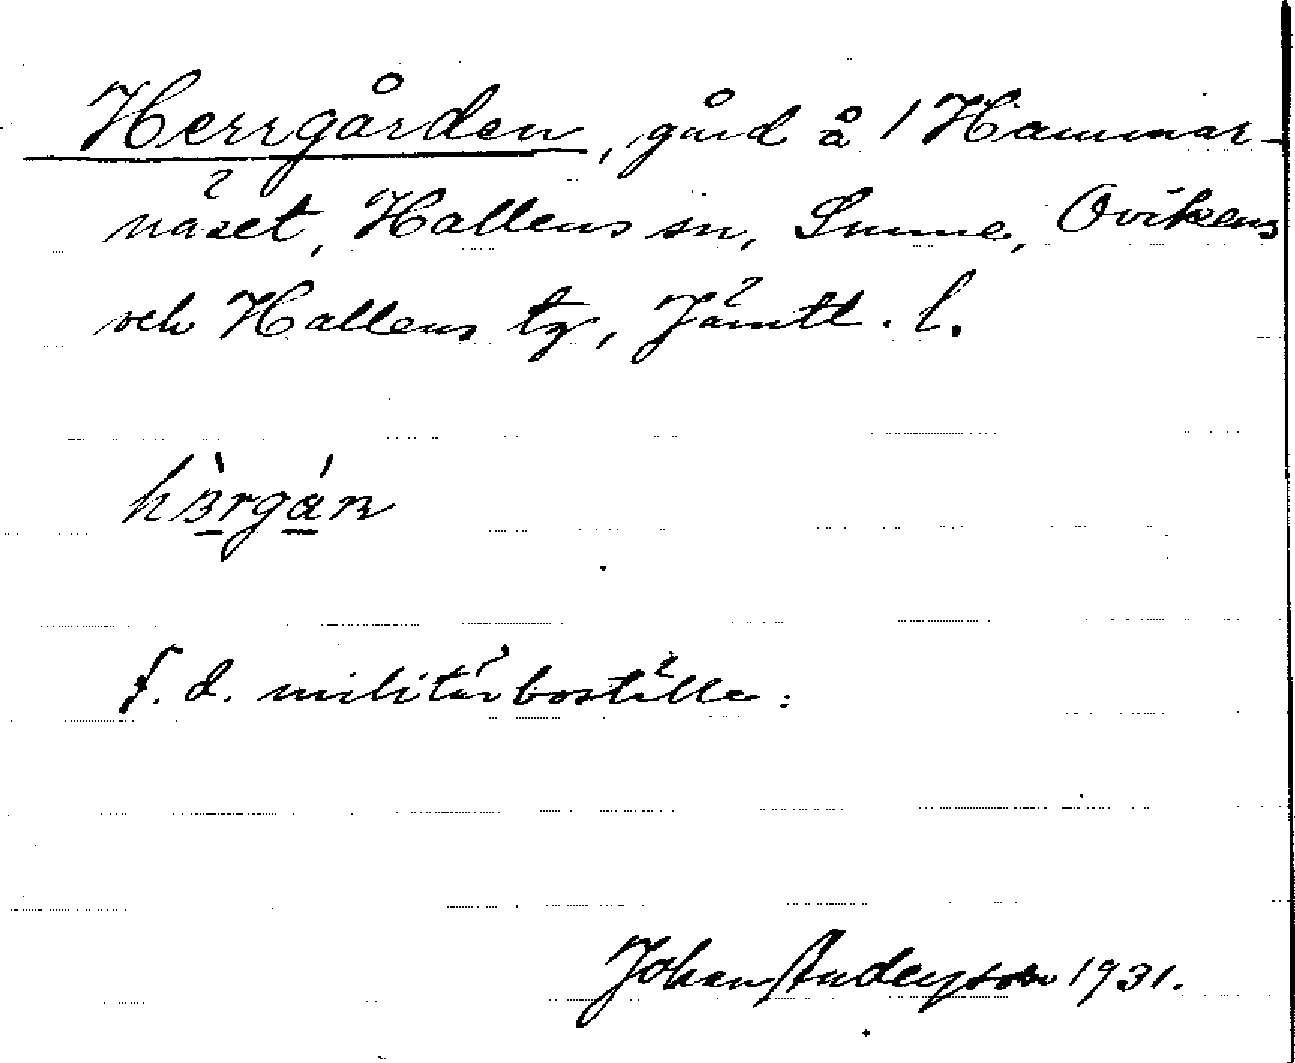 Herrgården, gård å 1 Hammar-
näset, Hallens sn, Sunne, Ovikens
och Hallens tg, Jämtl. l.
f. d. militärboställe.
Johan Anderson 1931.